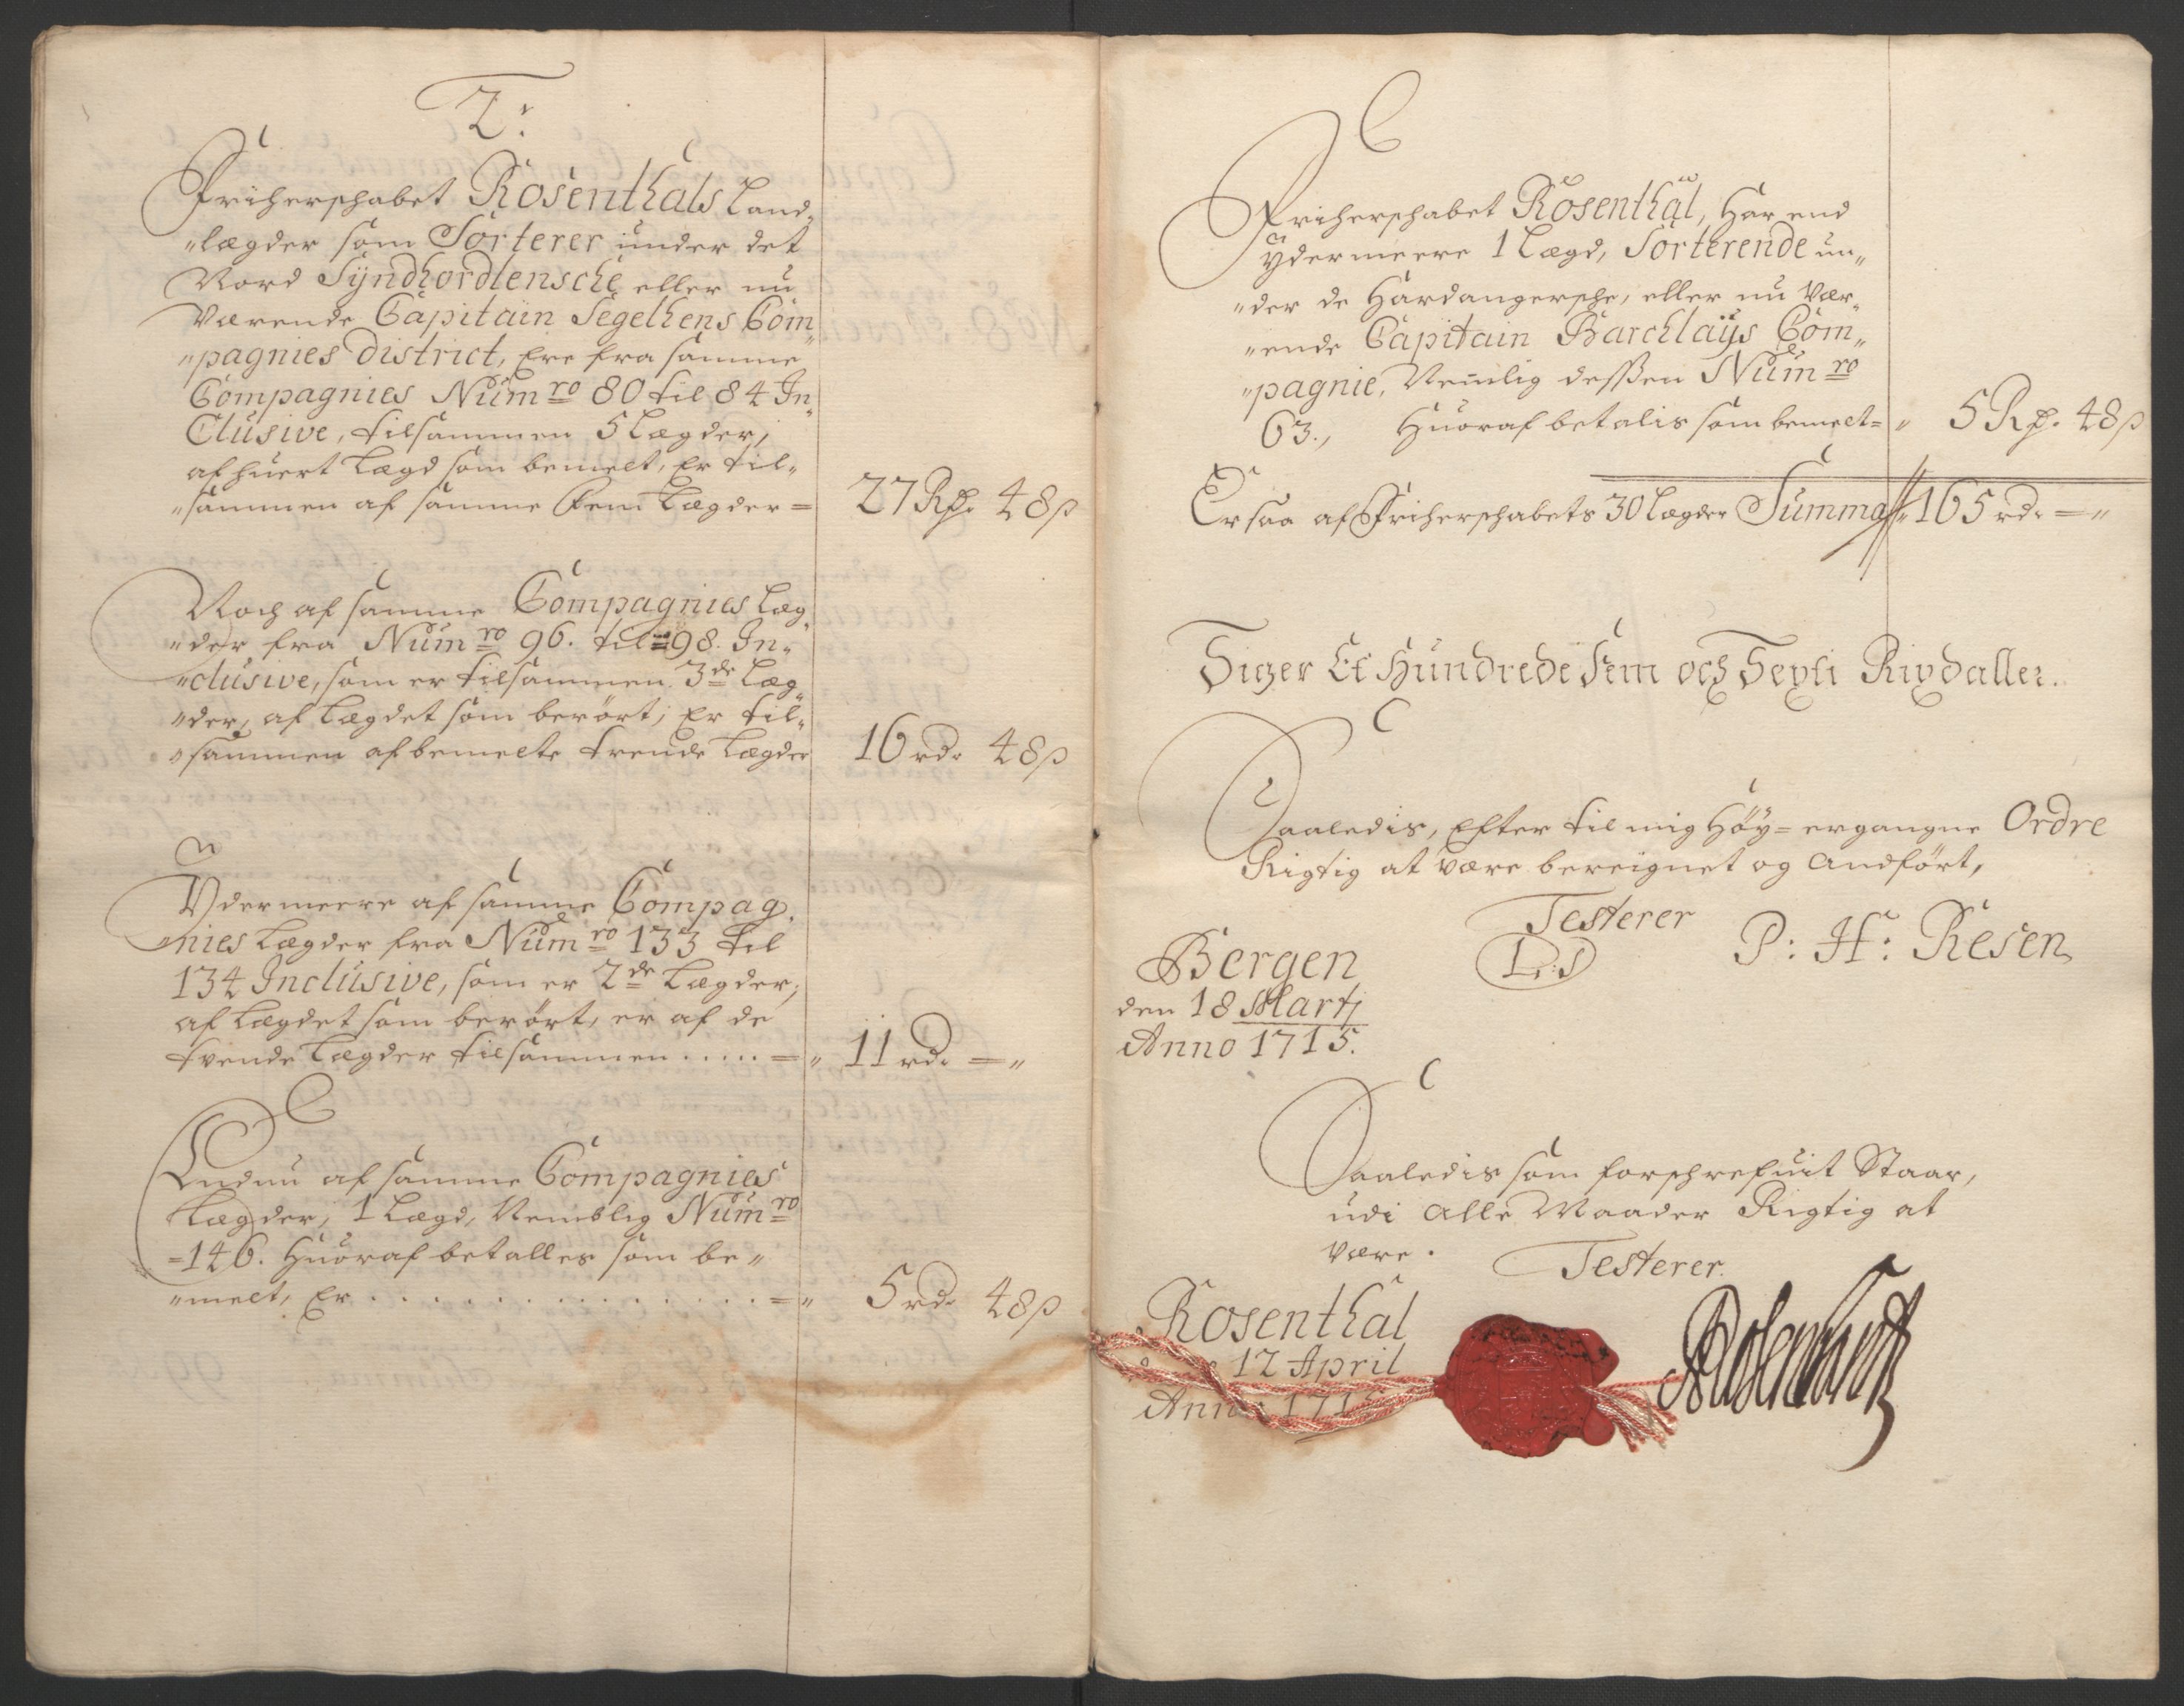 2.
Friherschabet Rosenthals Land-
"lægder som Sorterer under det
Nord Syndhordlensche eller nu
Værende Capitain Segelhens Com"
"pagnies District, Ere fra samme
Compagnies Numro 80 til 84 In"
Clusive, tilsammen 5 Lægder,
af huert Lægd som bemelt, Er til-
"sammen af samme Fem Lægder = 27 Rd. 48 ß
Noch af samme Compagnies Læg-
"der fra Numro 96. til 98. In-
"clusive, som er tilsammen 3de Læg-
"der, af Lægdet som berørt, Er til-
"sammen af bemelte trende Lægder 16 rd. 48 ß
Ydermeere af samme Compag-
nies Lægder fra Numro 133 til
134 Inclusive, som er 2de Lægder,
af Lægdet som berørt, er af de
tvende Lægder tilsammen ..... = " 11 rd. = "
Endnu af samme Compagnies
Lægder, 1 Lægd, Nemblig Numro
=146. Huoraf betalles som be"
"melt, Er . . . . . . . . . . . . . = " 5 rd. 48 ß
Friherschabet Rosenthal, Har end
ydermeere 1 Lægd, Sorterende un"
"der de Hardangersche, eller nu Vær-
"ende Capitain Barchlays Com"
"pagnie, Nemlig dessen Numro
63., Huoraf betalis som bemelt= " 5 Rd. 48 ß
Er saa af Friherschabets 30 Lægder Summa " 165 rd. = "
Siger Et Hundrede Fem och Sexti Rixdaller.
Saaledis, Efter til mig Høy= ergangne Ordre
Rigtig at være bereignet og Andført,
Testerer
Bergen (L. S) P: H: Resen
den 18 Martj
Anno 1715.
Saaledis som forschrefuit Staar,
udi Alle Maader Rigtig at
være.
Testerer.
Rosenthal
12 April
Anno 1715